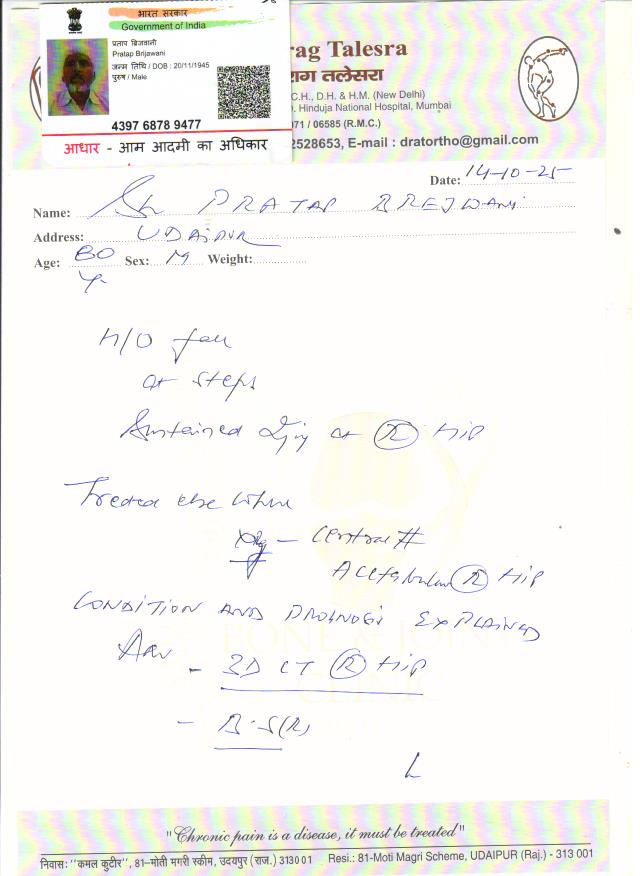 भारत सरकार
Government of India
प्रताप ब्रिजवानी
Pratap Brijawani
जन्म तिथि / DOB : 20/11/1945
पुरुष / Male
4397 6878 9477
आधार - आम आदमी का अधिकार
rag Talesra
राग तलेसरा
C.H., D.H. & H.M. (New Delhi)
Hinduja National Hospital, Mumbai
071 / 06585 (R.M.C.)
2528653, E-mail : dratortho@gmail.com
Date: 14-10-25
Name: Sh PRATAP BREJWANI
Address: UDAIPUR
Age: 80 Sex: M Weight:
Yr
H/O fall
at steps
Sustained Injury at (R) HIP
Treated else where
Xray - Central #
Acetabulum (R) HIP
CONDITION AND PROGNOSIS EXPLAINED
Adv - 3D CT (R) HIP
- B.S(R)
BONE & JOINT
"Chronic pain is a disease, it must be treated"
निवास: "कमल कुटीर", 81-मोती मगरी स्कीम, उदयपुर (राज.) 313001 Resi.: 81-Moti Magri Scheme, UDAIPUR (Raj.) - 313 001